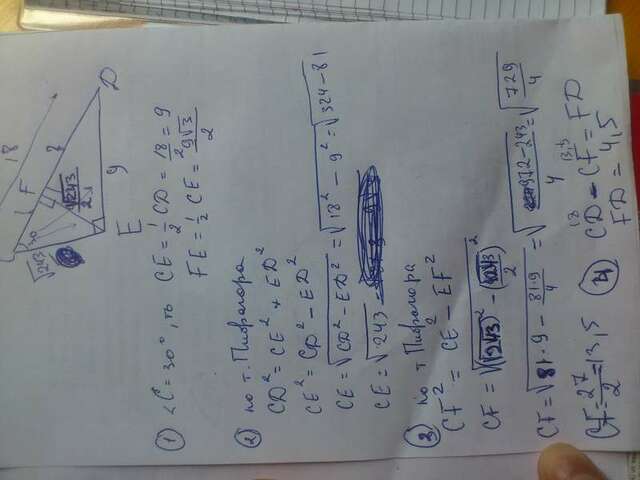 18
F
8
D
30
√243
√243
2
9
E
① <C=30°, то CE = 1/2 CD = 18/2 = 9
FE = 1/2 CE = 9√3/2
② по т. Пифагора
CD² = CE² + ED²
CE² = CD² - ED²
CE = √CD² - ED² = √18² - 9² = √324-81
CE = √243
③ по т Пифагора
CF² = CE² - EF²
CF = √(√243)² - (√243/2)²
CF = √81·9 - 81·9/4 = √972-243/4 = √729/4
CF = 27/2 = 13,5
④ CD - CF = FD
18 13,5
FD = 4,5